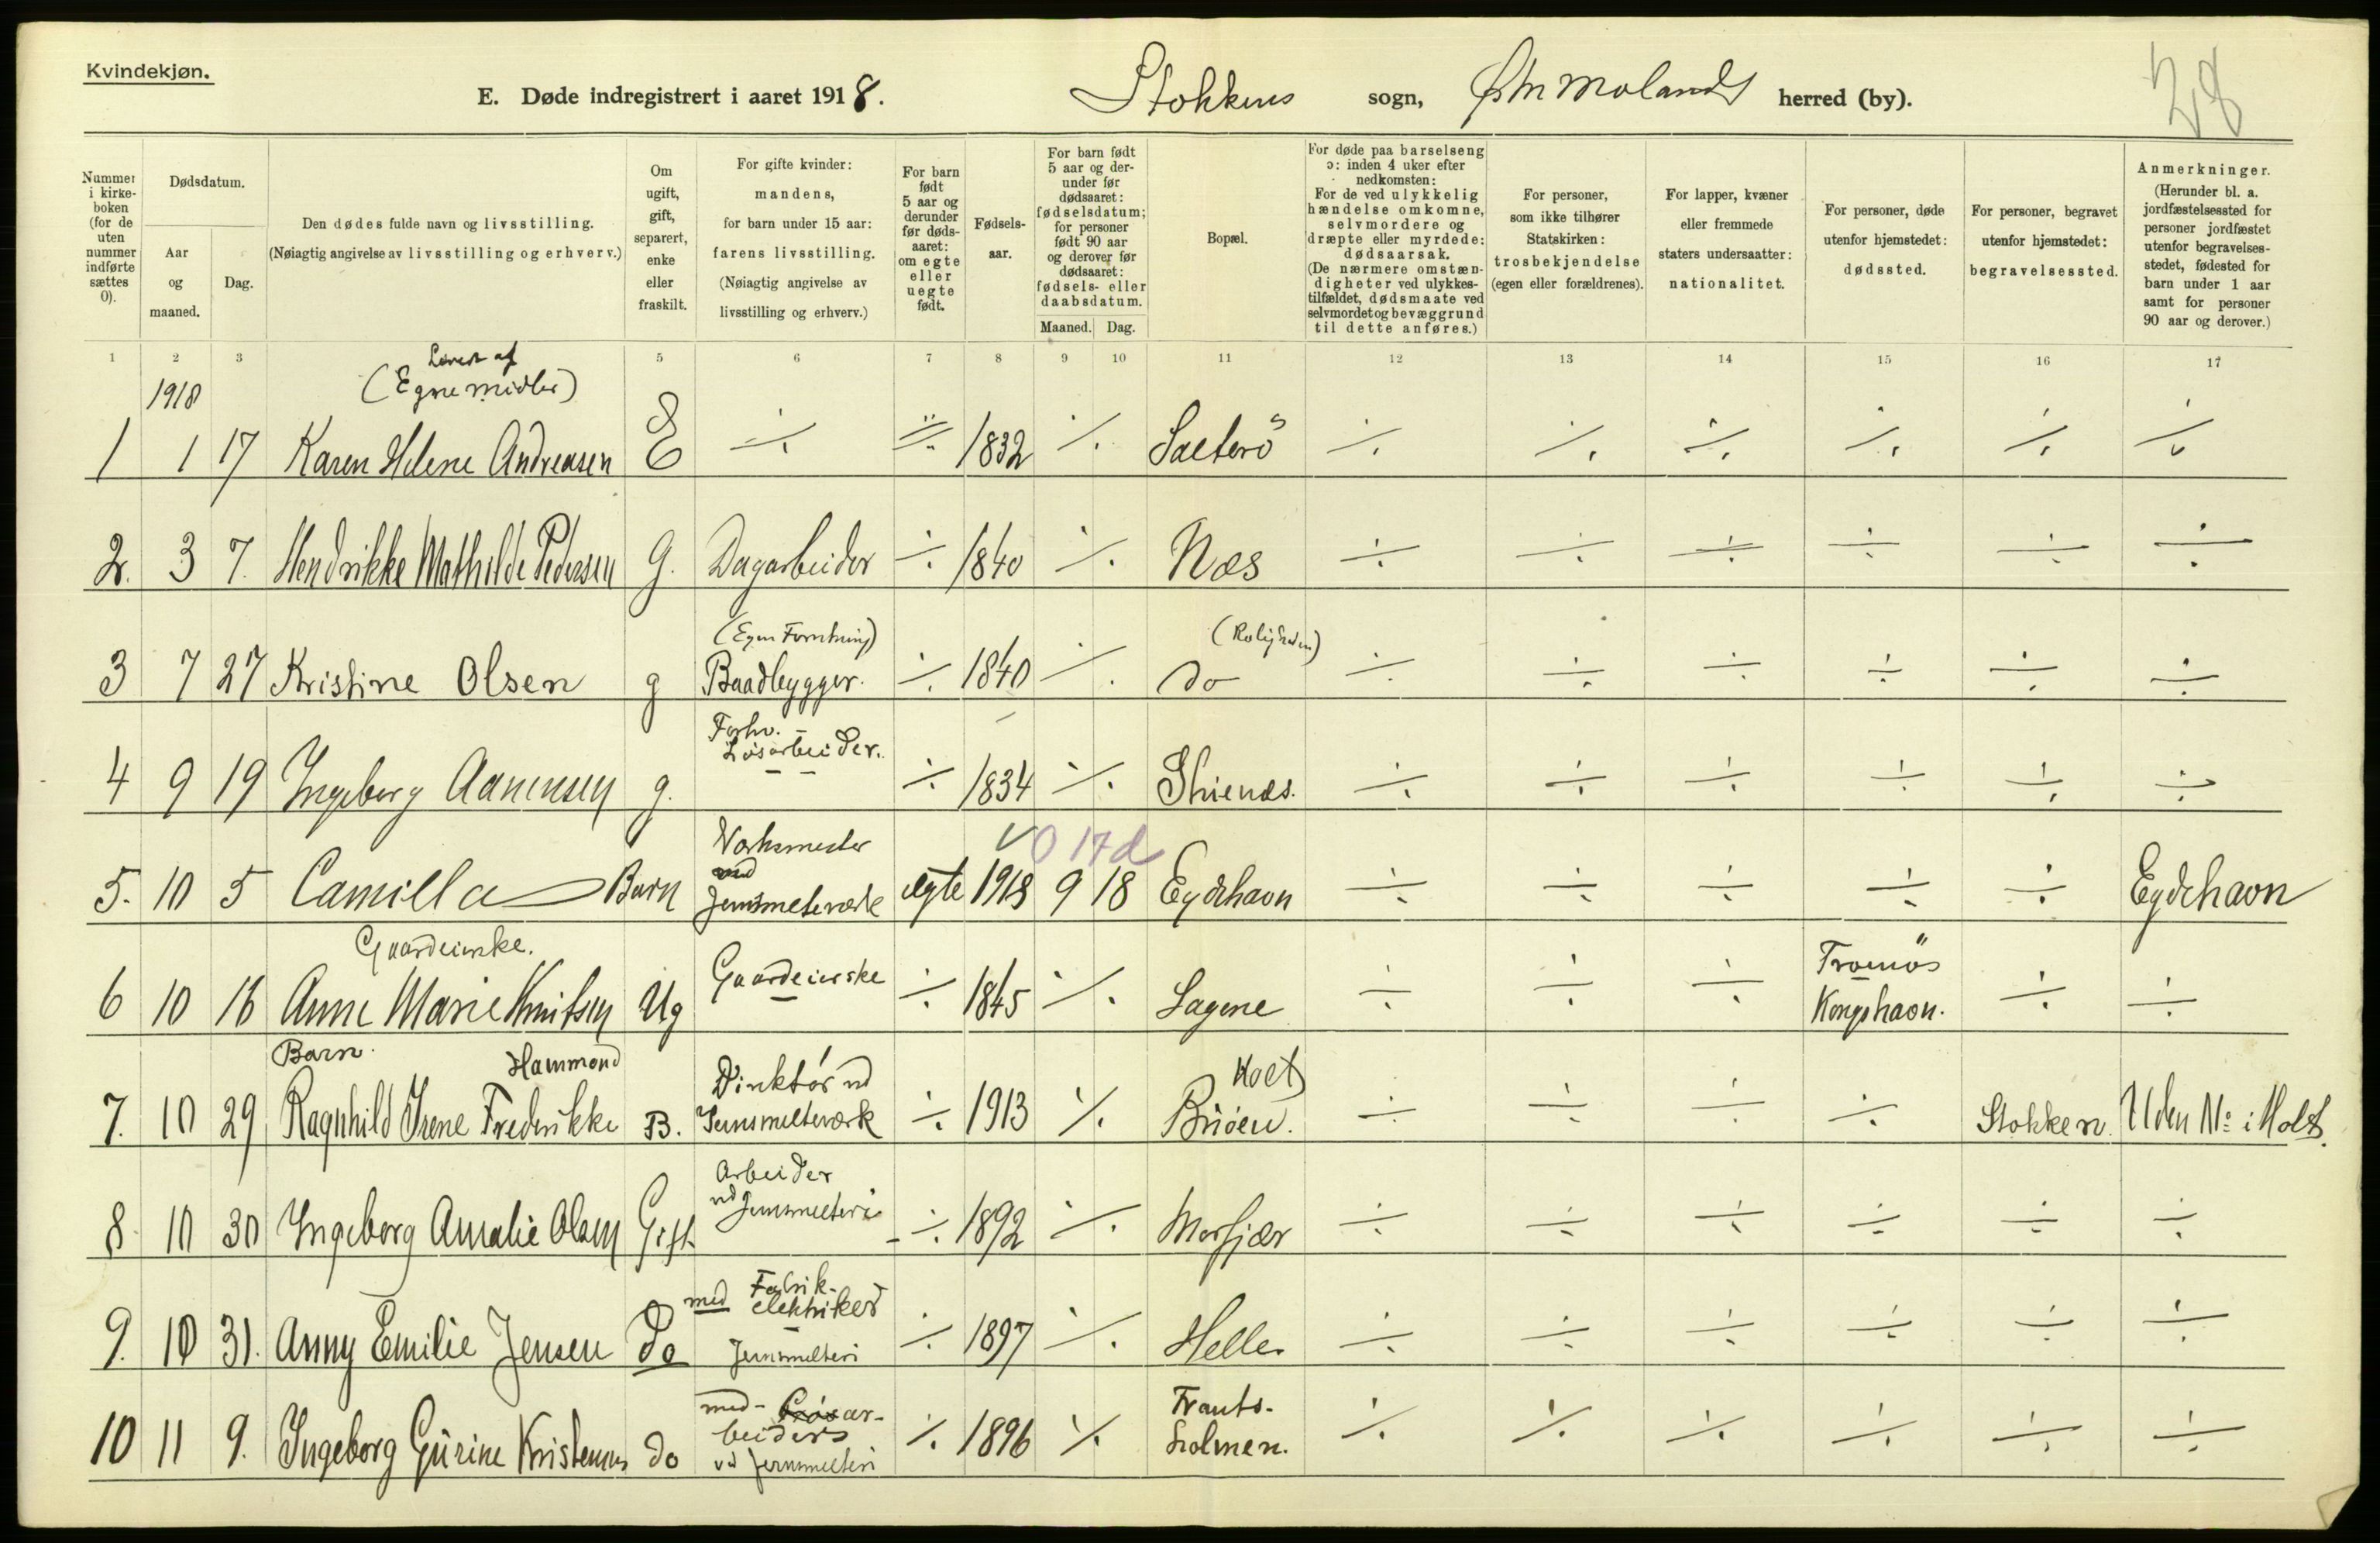 Kvindekjøn.
E. Døde indregistrert i aaret 1918. Stokkens sogn, Østre Molands herred (by).
28
Nummer i kirke-boken (for de uten nummer indførte sættes 0).
Dødsdatum.
Aar og maaned.
Dag.
Den dødes fulde navn og livsstilling.
(Nøiagtig angivelse av livsstilling og erhverv.)
Om ugift, gift, separert, enke eller fraskilt.
For gifte kvinder: mandens, for barn under 15 aar: farens livsstilling. (Nøiagtig angivelse av livsstilling og erhverv.)
For barn født 5 aar og derunder før døds-aaret: om egte eller uegte født.
Fødsels-aar.
For barn født 5 aar og der-under før dødsaaret: fødselsdatum; for personer født 90 aar og derover før dødsaaret: fødsels- eller daabsdatum.
Maaned. Dag.
Bopæl.
For døde paa barselseng ɔ: inden 4 uker efter nedkomsten: For de ved ulykkelig hændelse omkomne, selvmordere og dræpte eller myrdede: dødsaarsak. (De nærmere omstæn-digheter ved ulykkes-tilfældet, dødsmaate ved selvmordet og bevæggrund til dette anføres.)
For personer, som ikke tilhører Statskirken: trosbekjendelse (egen eller forældrenes).
For lapper, kvæner eller fremmede staters undersaatter: nationalitet.
For personer, døde utenfor hjemstedet: dødssted.
For personer, begravet utenfor hjemstedet: begravelsessted.
Anmerkninger. (Herunder bl. a. jordfæstelsessted for personer jordfæstet utenfor begravelses-stedet, fødested for barn under 1 aar samt for personer 90 aar og derover.)
1 2 3 5 6 7 8 9 10 11 12 13 14 15 16 17
Levet af
1918 (Egne midler)
1 1 17 Karen Helene Andreasen E ÷ ÷ 1832 ÷ Sæterö ÷ ÷ ÷ ÷ ÷ ÷
2. 3 7. Hendrikke Mathilde Pedersen G. Dagarbeider ÷ 1840 ÷ Næs ÷ ÷ ÷ ÷ ÷ ÷
(Egen Forretning) (Roligheden)
3 7 27 Kristine Olsen g Baadbygger. ÷ 1840 ÷ do ÷ ÷ ÷ ÷ ÷ ÷
Forhv. Løsarbeider.
4 9 19 Ingeborg Aanensen g. ÷ 1834 ÷ Skienæs. ÷ ÷ ÷ ÷ ÷ ÷
Værksmester 0 17 d
ved
5. 10 5 Camilla Barn Jernsmelteværk egte 1918 9 18 Eydehavn ÷ ÷ ÷ ÷ ÷ Eydehavn
Gaardeierske. Gaardeierske Tromøs
6 10 16 Anne Marie Knutsen Ug ÷ 1845 ÷ Lagene ÷ ÷ ÷ Kongshavn. ÷ ÷
Barn. Hammond Direktør vd Holt
7. 10 29 Ragnhild Irene Frederikke B. Jernsmelteværk ÷ 1913 ÷ ÷ ÷ ÷ ÷ Stokken. Uden No i Holt.
Arbeider
vd Jernsmelteri
8 10 30 Ingeborg Amalie Olsen Gift ÷ 1892 ÷ Morfjær ÷ ÷ ÷ ÷ ÷ ÷
med Fabrik-
elektriker
9. 10 31. Anny Emilie Jensen Do Jernsmelteri ÷ 1897 ÷ Helle. ÷ ÷ ÷ ÷ ÷ ÷
med ar- Frants-
beiders holmen.
10 11 9. Ingeborg Gürine Kristensen do vd Jernsmelteri ÷ 1896 ÷ ÷ ÷ ÷ ÷ ÷ ÷